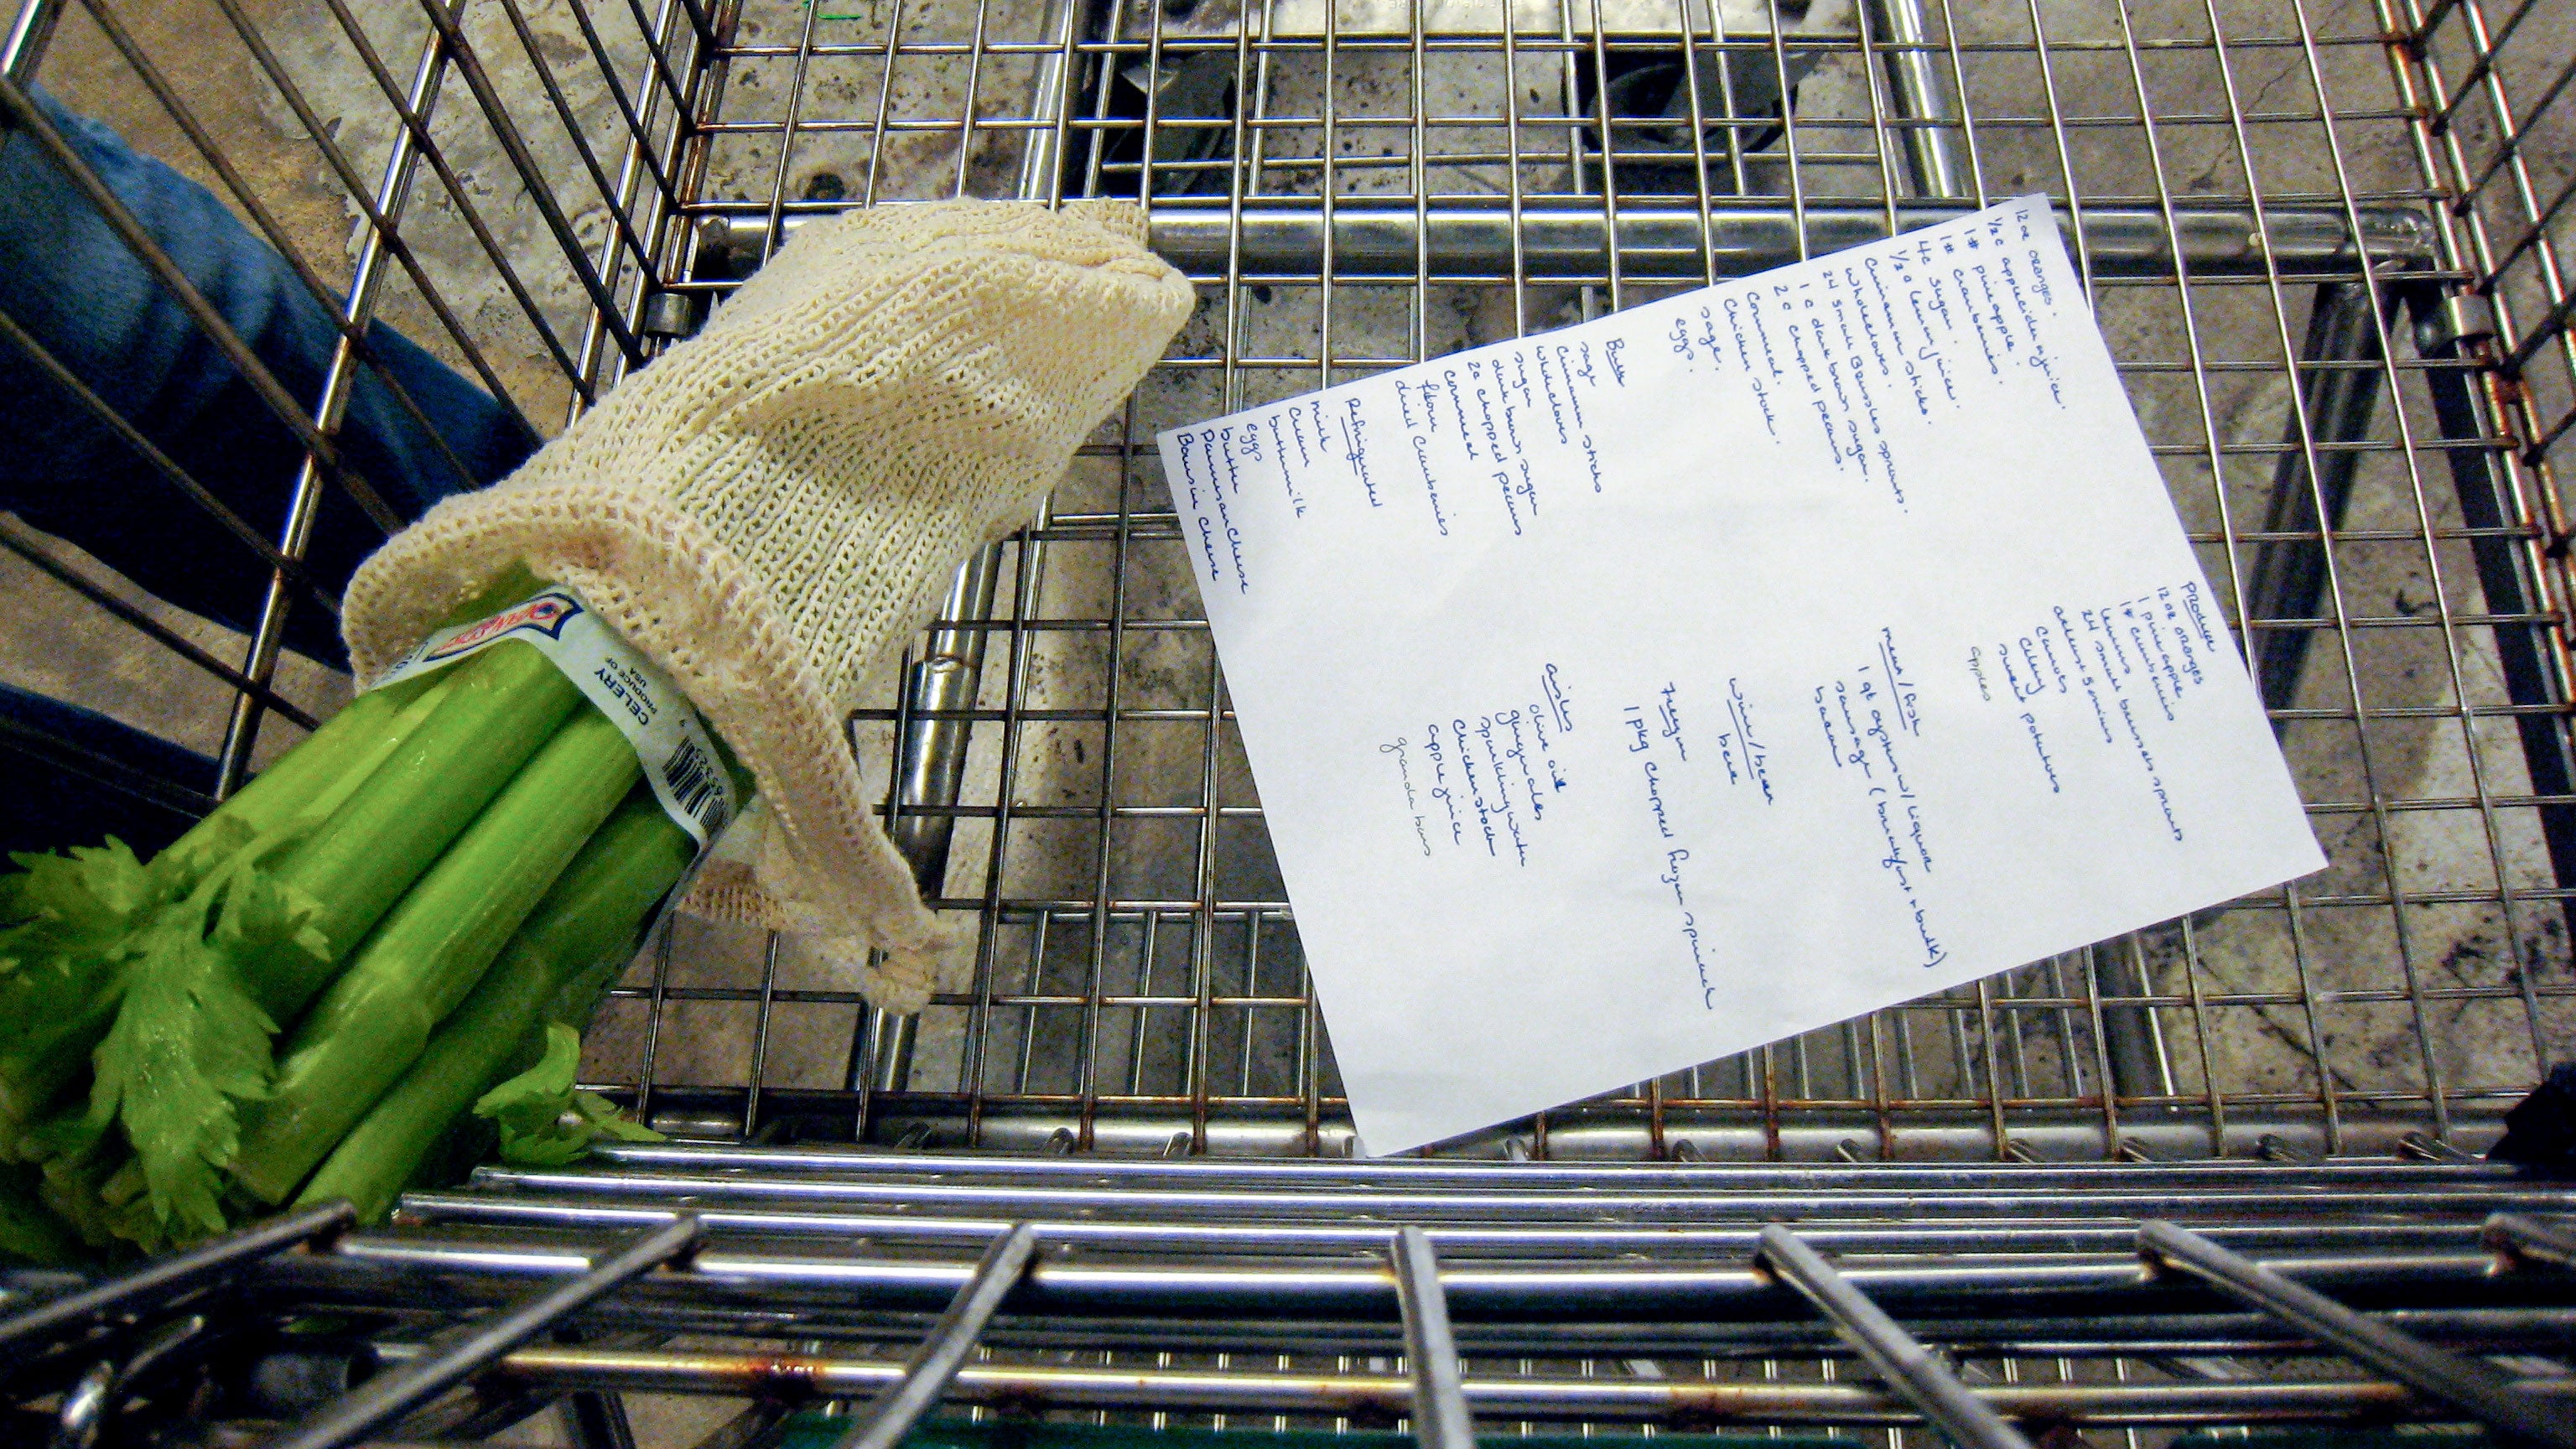 12 oz oranges.
1/2 c apple cider or juice.
1# pineapple.
1# cranberries.
4c sugar.
1/2 c lemon juice.
cinnamon sticks.
whole cloves.
24 small Brussles sprouts.
1 c dark brown sugar.
2 c chopped pecans.
cornmeal.
chicken stock.
sage.
eggs.
Bulk
sage
cinnamon sticks
whole cloves
sugar
dark brown sugar
2c chopped pecans
cornmeal
flour
dried cranberries
Refrigerated
milk
cream
buttermilk
eggs
butter
Parmisan cheese
Boursin cheese
Produce
12 oz oranges
1 pineapple
1# cranberries
lemons
24 small brussels sprouts
carrots
celery
sweet potatoes
apples
meat/fish
1 qt oysters w/ liquor
sausage (breakfast + bulk)
bacon
wine/beer
beer
frozen
1 pkg chopped frozen spinach
aisles
olive oil
ginger ales
sparkling water
chicken stock
apple juice
granola bars
CELERY
PRODUCE OF
USA